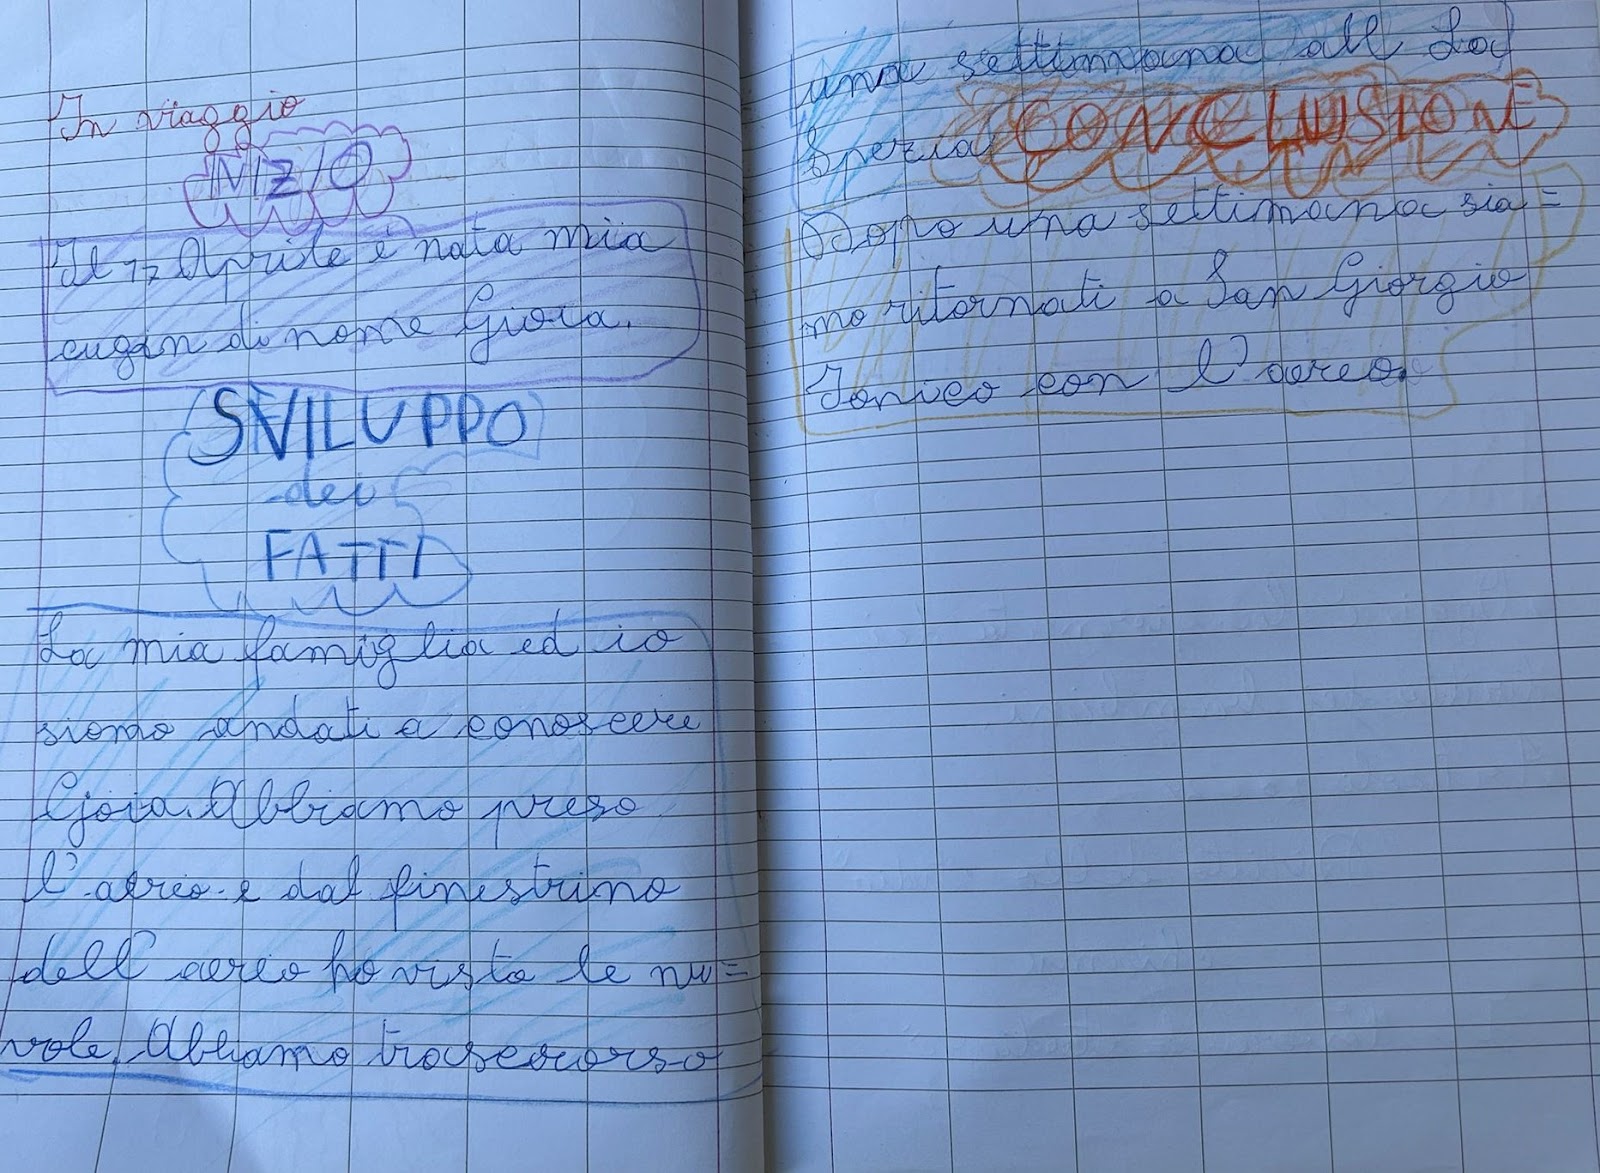 In viaggio
INIZIO
Il 17 Aprile è nata mia
cugin di nome Gioia.
SVILUPPO
dei
FATTI
La mia famiglia ed io
siamo andati a conoscere
Gioia. Abbiamo preso
l'aereo e dal finestrino
dell'aereo ho visto le nu=
vole. Abbiamo trascorso
una settimana all La
Spezia
CONCLUSIONE
Dopo una settimana sia=
mo ritornati a San Giorgio
Ionico con l'aereo.